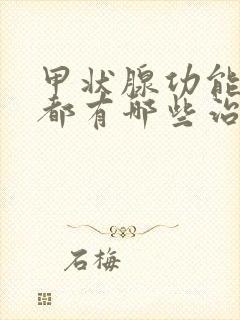 甲状腺功能
都有哪些治
石梅